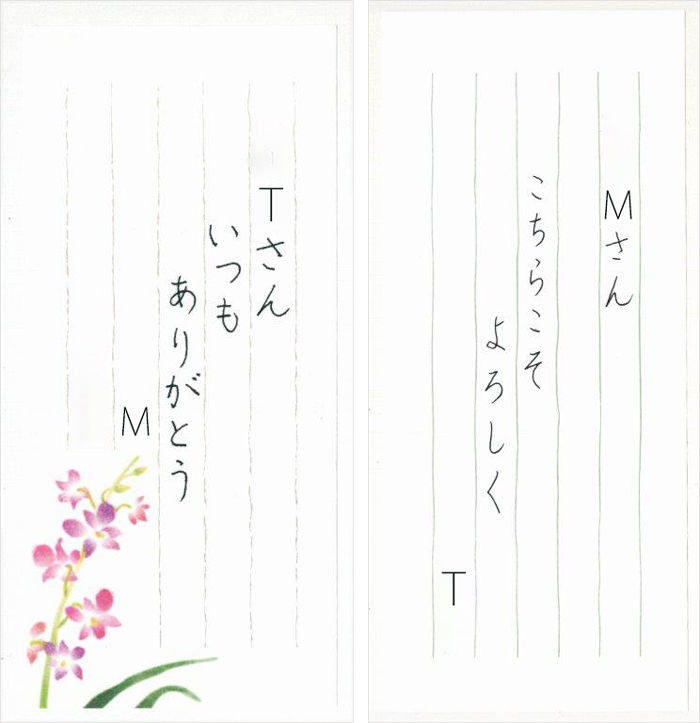 Tさん
いつも
ありがとう
M
Mさん
こちらこそ
よろしく
T